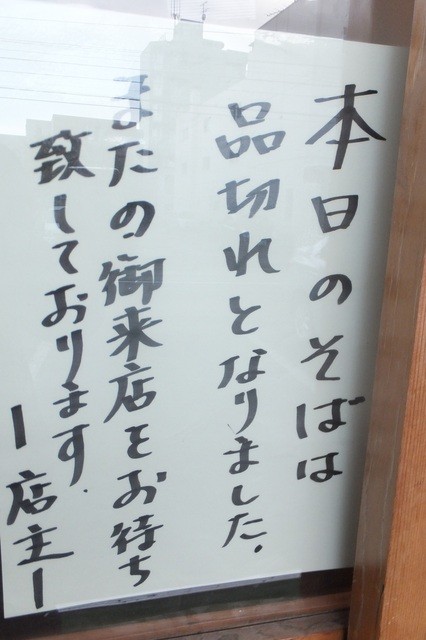 本日のそばは
品切れとなりました。
またの御来店をお待ち
致しております。
ー店主ー